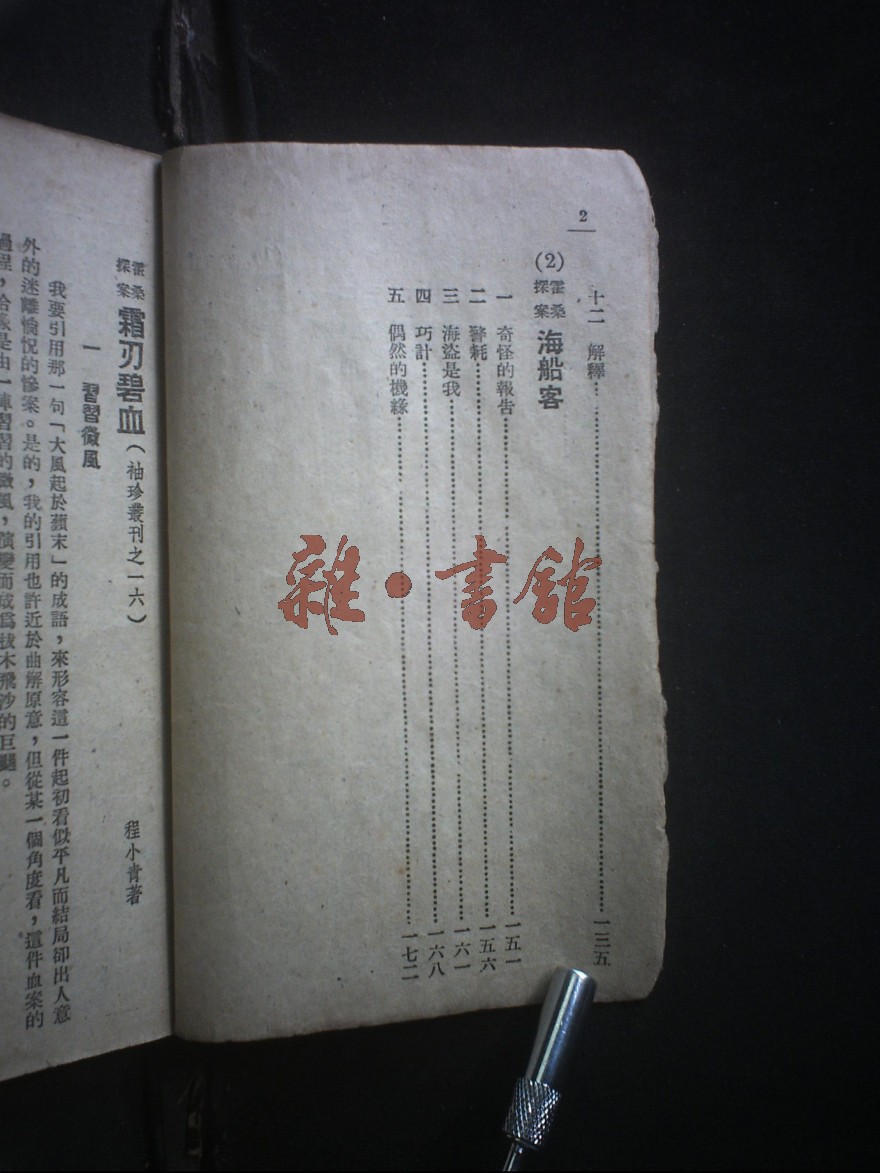 2
十二　解釋……一三五
(2) 霍桑探案 海船客
一　奇怪的報告……一五一
二　警耗……一五六
三　海盜是我……一六一
四　巧計……一六八
五　偶然的機緣……一七二
霍桑探案 霜刃碧血（袖珍叢刊之一六）　程小青著
一　習習微風
我要引用那一句「大風起於蘋末」的成語，來形容這一件起初看似平凡而結局卻出人意
外的迷離惝怳的慘案。是的，我的引用也許近於曲解原意，但從某一個角度看，這件血案的
過程，恰像是由一陣習習的微風，演變而成爲拔木飛沙的巨飆。
雜·書館